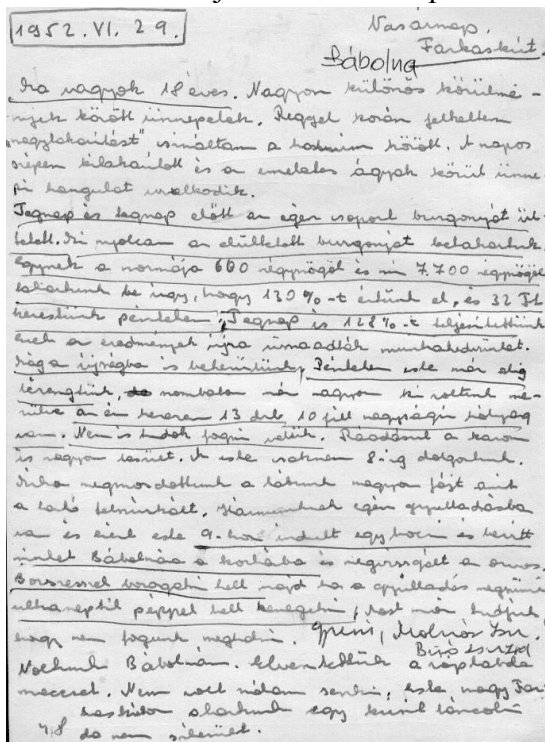 1952. VI. 29. Vasárnap.
Farkaskút.
Bábolna
Ma vagyok 18 éves. Nagyon különös körülmé-
nyek között ünnepelek. Reggel korán felkeltem
"nagytakarítást" csináltam a között. A napos
szépen kitakarított és a emeletes ágyak körül ünne
pi hangulat uralkodik.
Tegnap és tegnap előtt az egész csoport burgonyát ül-
tetett. Mi nyolcan az elültetett burgonyát betakartuk.
Egynek a normája 600 négyszögöl és mi 7.700 négyszögöl
takartunk be úgy, hogy 130%-t értünk el, és 32 Ft
kerestünk pénteken. Tegnap is 128%-t teljesítettünk
ezek a eredmények újra visszaadták munkakedvünket.
Még a újságba is bekerültünk. Pénteken este már alig
szombaton már nagyon ki voltunk me-
rülve az én kezemen 13 drb. 10 fill nagyságú hólyag
van. Nem is tudok fogni velük. Ráadásul a karom
is nagyon A este 8-ig dolgoztunk.
megmosdottunk a lábunk nagyon fájt amit
a tarló felszurkált. Hármunknak egész gyulladásba
van és ezért este 9-kor indult egy kocsi és bevitt
minket Bábolnára a kórházba és megvizsgált a orvos.
Borszesszel borogatni kell majd ha a gyulladás megszűnik
péppel kell kenegetni, most már tudjuk
hogy nem fogunk meghalni. Molnár Zsu.
Bíró Zsuzsa
Voltunk Bábolnán. Elvesztettük a röplabda
meccset. Nem volt nálam senki, este nagy Far
kaskúton akartunk egy kicsit táncolni
de nem sikerült.